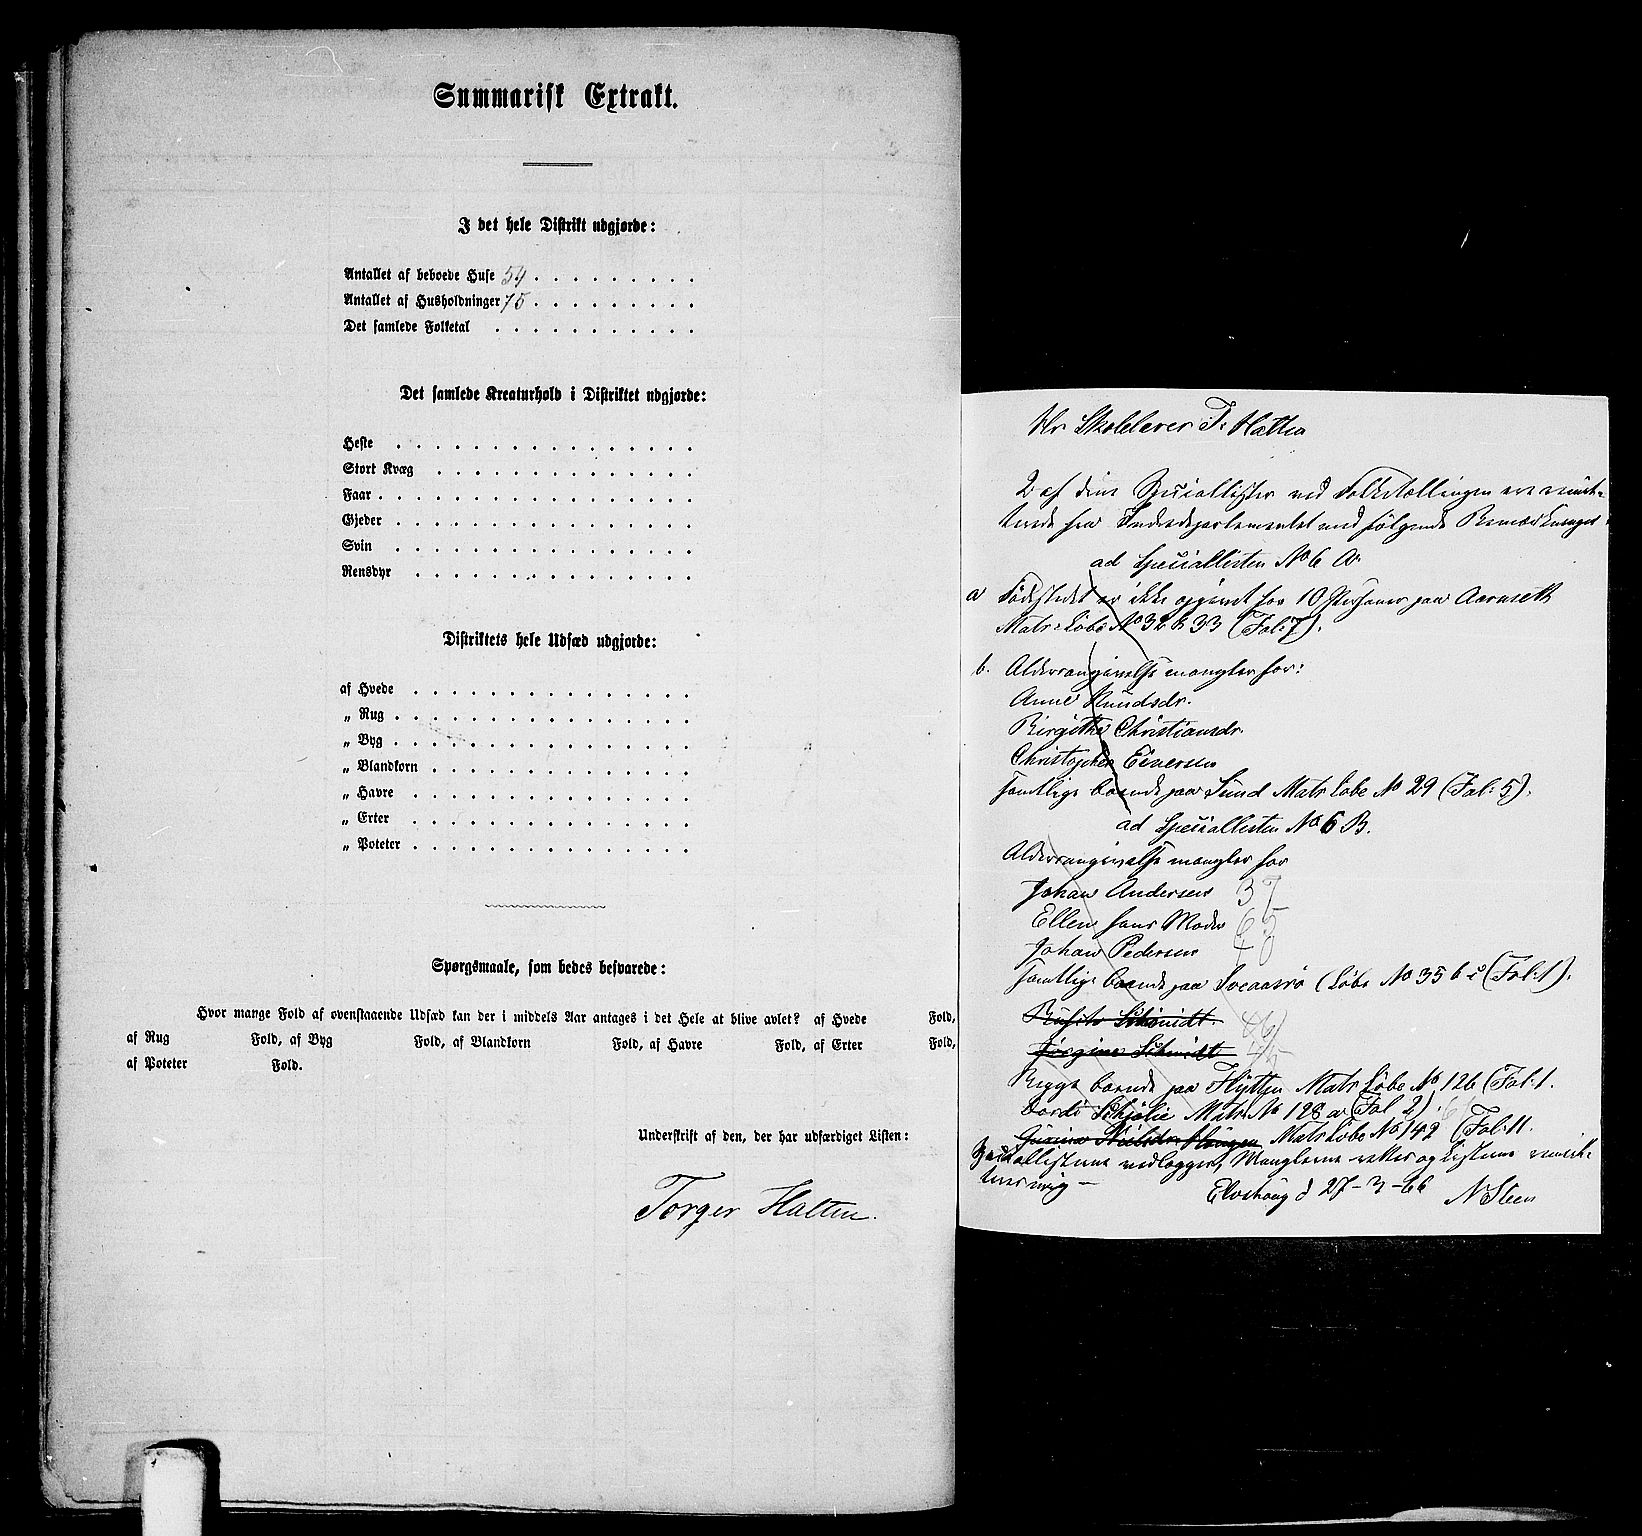 Summarisk Extrakt.
I det hele Distrikt udgjorde:
Antallet af beboede Huse 54
Antallet af Husholdninger 75
Det samlede Folketal
Det samlede Kreaturhold i Distriktet udgjorde:
Heste
Stort Kvæg
Faar
Gjeder
Svin
Rensdyr
Distriktets hele Udsæd udgjorde:
af Hvede
„ Rug
„ Byg
„ Blandkorn
„ Havre
„ Erter
„ Poteter
Spørgsmaale, som bedes besvarede:
Hvor mange Fold af ovenstaaende Udsæd kan der i middels Aar antages i det Hele at blive avlet? af Hvede Fold,
af Rug Fold, af Byg Fold, af Blandkorn Fold, af Havre Fold, af Erter Fold,
af Poteter Fold.
Underskrift af den, der har udfærdiget Listen:
Torger Halten.
Hr Skolelærer T. Halten
2 af dine Speciallister ved Folketællingen ere remit-
terede fra Indredepartementet med følgende Bemærkninger
ad Speciallisten No 6 A.
a Fødestedet er ikke opgivet for 10 Personer paa
Matr: Løbe No 32 & 33 (Fol: 7).
b. Aldersangivelse mangler for:
Anne Knudsdr.
Birgithe Christiansdr.
Christopher Einersen
samtlige boende paa Sund Matr Løbe No 29 (Fol: 5).
ad Speciallisten No 6 B.
Aldersangivelse mangler for
Johan Andersen 37
Ellen hans Moder 65
Johan Pedersen 40
samtlige boende paa (Løbe No 35 b c (Fol: 1).
Schmidt.
Jørgine Schmidt 45
Begge boende paa Matr Løbe No 126 (Fol: 1.
Matr. No 128 a (Fol 2)
Matr Løbe No 142 (Fol: 11.
Speciallisterne vedlægges, Manglerne rettes og Listerne remit-
teres mig –
d 27-3-66 N Steen